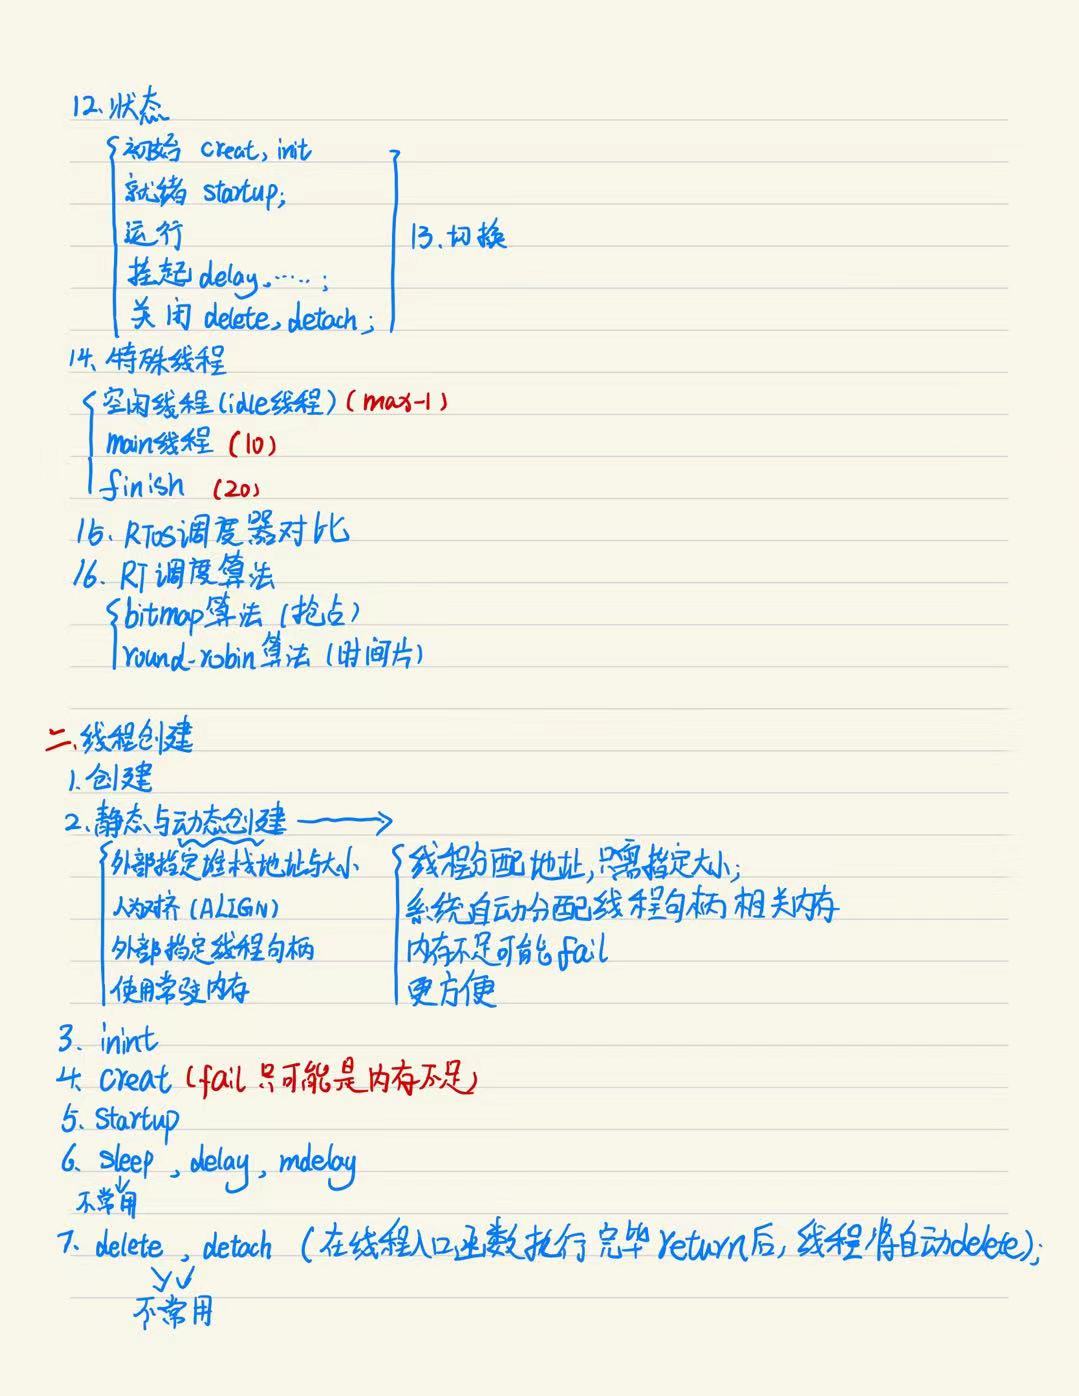 12. 状态
初始 creat, init
就绪 startup;
运行
13. 切换
挂起 delay, ……;
关闭 delete, detach;
14. 特殊线程
空闲线程(idle线程)(max-1)
main线程 (10)
finish (20)
15. RTOS调度器对比
16. RT调度算法
bitmap算法 (抢占)
round-robin算法 (时间片)
二. 线程创建
1. 创建
2. 静态与动态创建 →
外部指定堆栈地址与大小
人为对齐 (ALIGN)
外部指定线程句柄
使用常驻内存
线程分配地址, 只需指定大小;
系统自动分配线程句柄相关内存
内存不足可能fail
更方便
3. inint
4. creat (fail 只可能是内存不足)
5. startup
6. sleep, delay, mdelay
不常用
7. delete, detach (在线程入口函数执行完毕return后, 线程将自动delete);
不常用